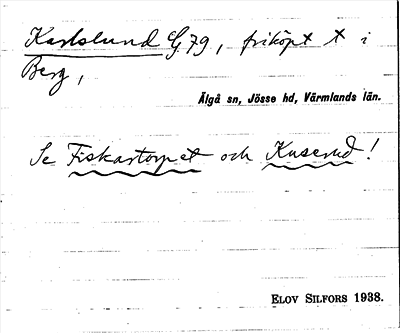 Karlslund G 79, friköpt t i
Berg,
Älgå sn, Jösse hd, Värmlands län.
Se Fiskartorpet och Kuserud!
ELOV SILFORS 1938.